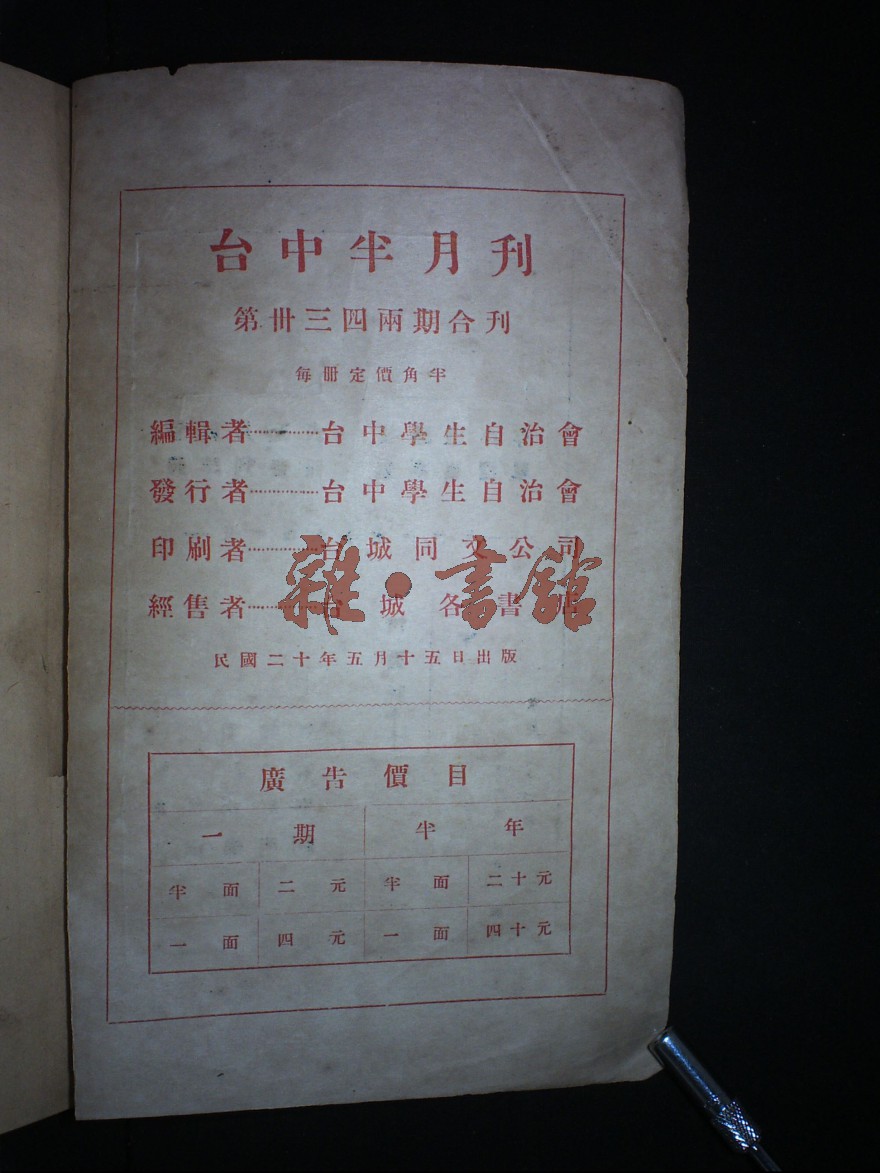 台中半月刊
第卅三四兩期合刊
每册定價角半
編輯者…………台中學生自治會
發行者…………台中學生自治會
印刷者…………台城同文公司
經售者…………台城各書店
民國二十年五月十五日出版
雜·書館
廣告價目
一期 半年
半面 二元 半面 二十元
一面 四元 一面 四十元